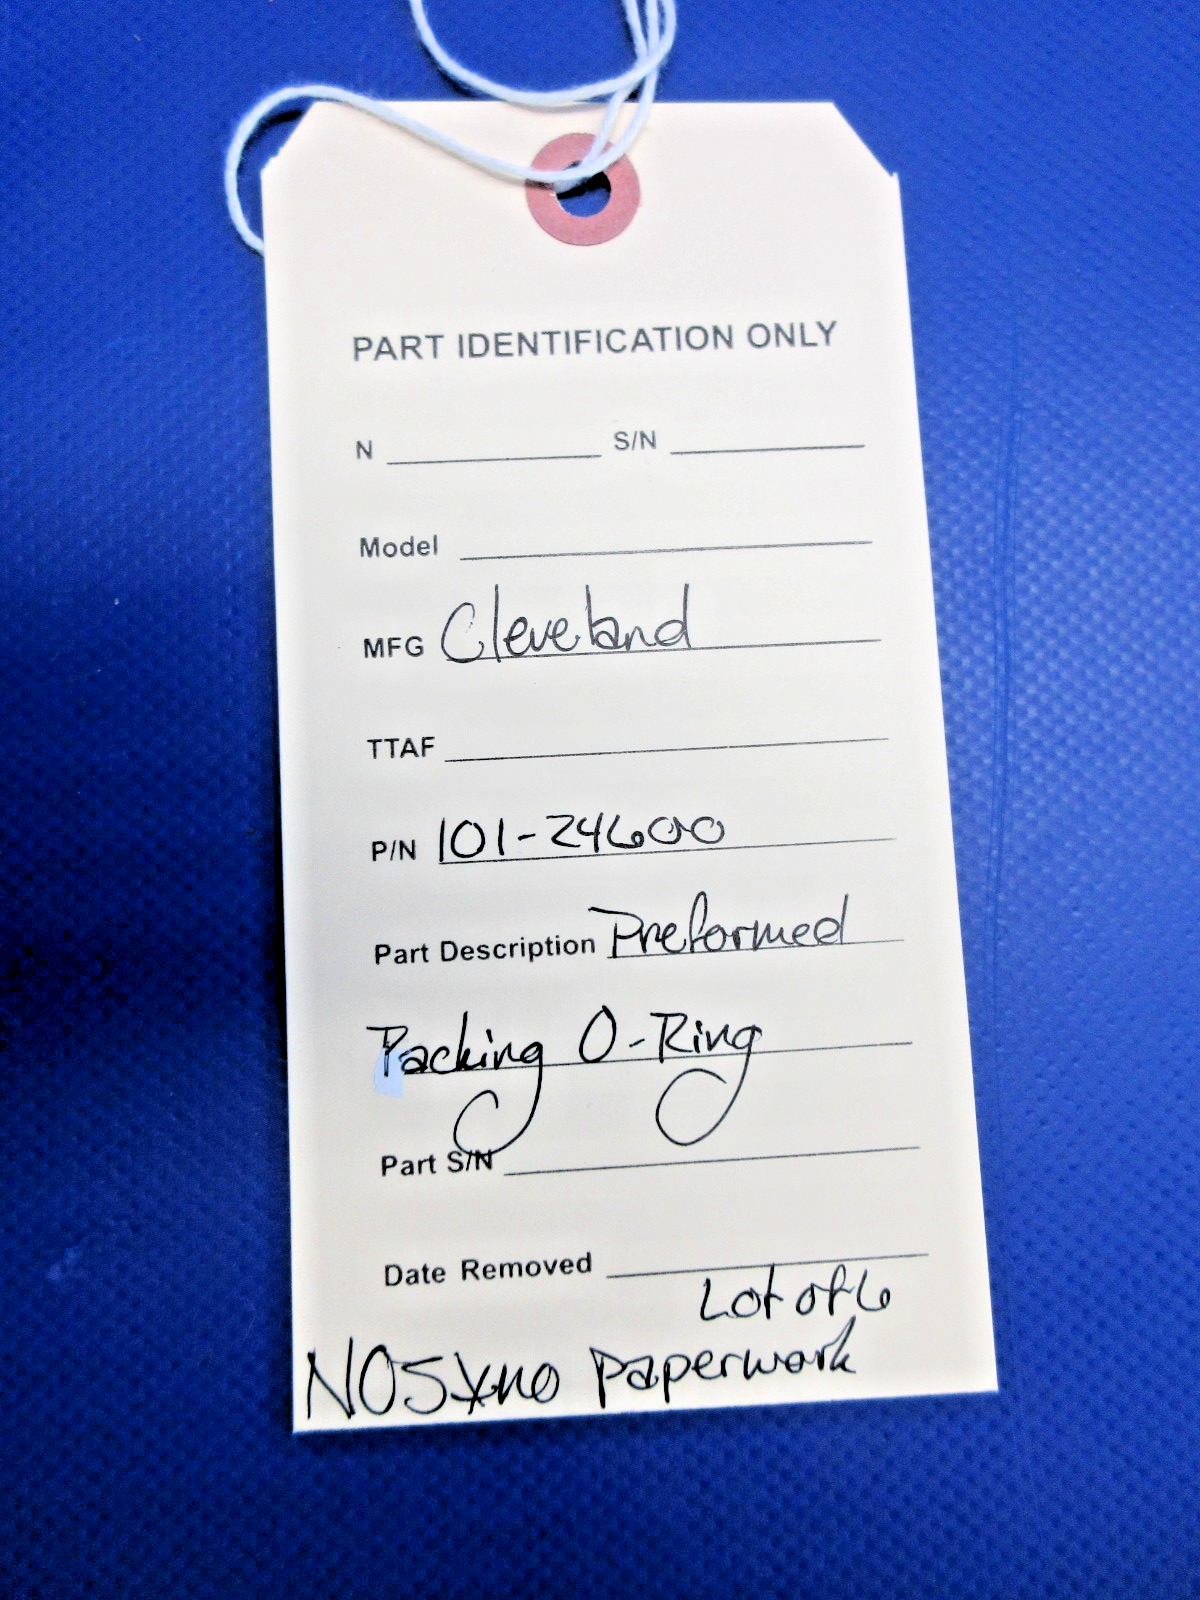 PART IDENTIFICATION ONLY
N S/N
Model
MFG Cleveland
TTAF
P/N 101-24600
Part Description Preformed
Packing O-Ring
Part S/N
Date Removed
Lot of 6
NOS no paperwork